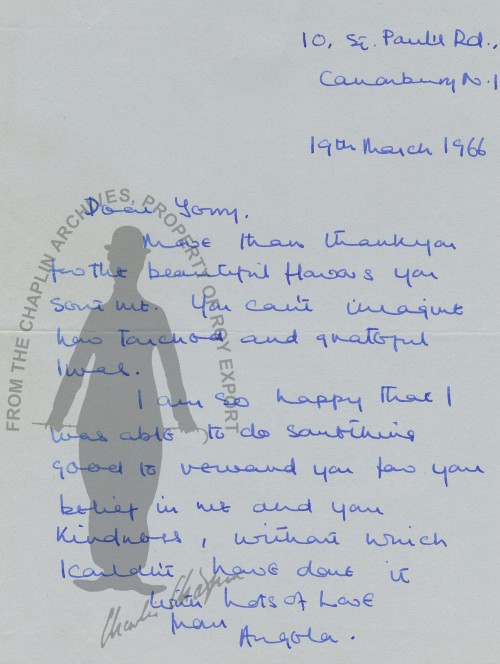 10, St. Paul's Rd.,
Canonbury N.1
19th March 1966
Dear Jerry.
More than thankyou
for the beautiful flowers you
sent me. You can't imagine
how touched and grateful
I was.
I am so happy that I
was able to do something
good to reward you for you
belief in me and you
kindness, without which
I couldn't have done it
with lots of Love
from
Angela.
FROM THE CHAPLIN ARCHIVES, PROPERTY OF ROY EXPORT
Charlie Chaplin